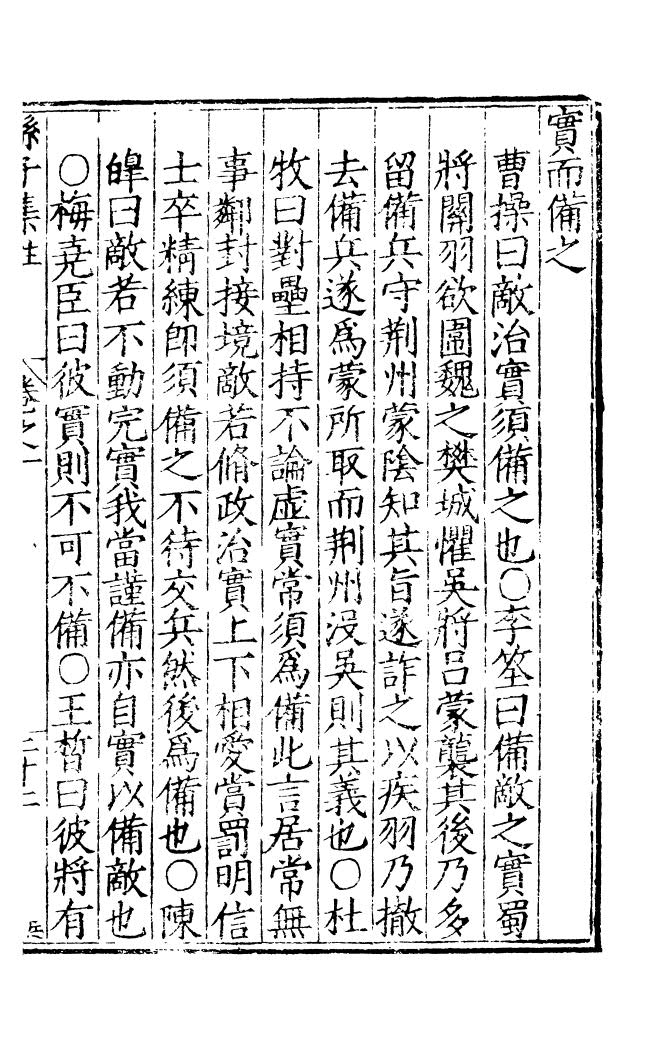 實而備之
曹操曰敵治實須備之也○李筌曰備敵之實蜀
將關羽欲圍魏之樊城懼吳將呂蒙襲其後乃多
留備兵守荆州蒙陰知其旨遂詐之以疾羽乃撤
去備兵遂爲蒙所取而荆州没吳則其義也○杜
牧曰對壘相持不論虛實常須爲備此言居常無
事鄰封接境敵若脩政治實上下相愛賞罰明信
士卒精練即須備之不待交兵然後爲備也○陳
皥曰敵若不動完實我當謹備亦自實以備敵也
○梅堯臣曰彼實則不可不備○王晳曰彼將有
孫子集註 卷之一 二十二